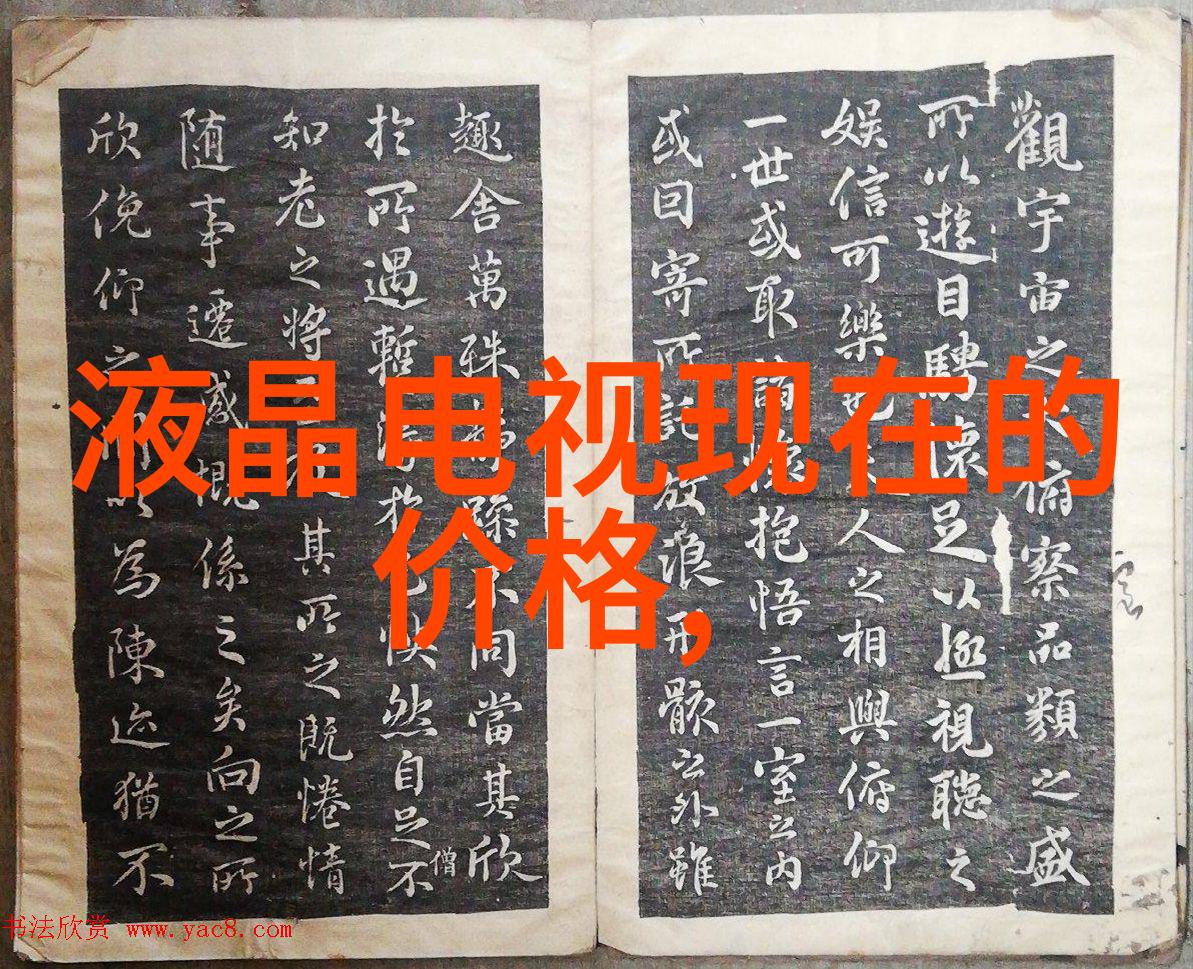 觀宇宙之大俯察品類之盛
所以遊目騁懷足以極視聽之
娛信可樂也夫人之相與俯仰
一世或取諸懷抱悟言一室之内
或因寄所託放浪形骸之外雖
趣舍萬殊静躁不同當其欣
於所遇暫得於己快然自足不
僧
知老之將至及其所之既惓情
随事遷感慨係之矣向之所
欣俛仰之間以為陳迹猶不
液晶电视现在的
价格,
书法欣赏 www.yac8.com